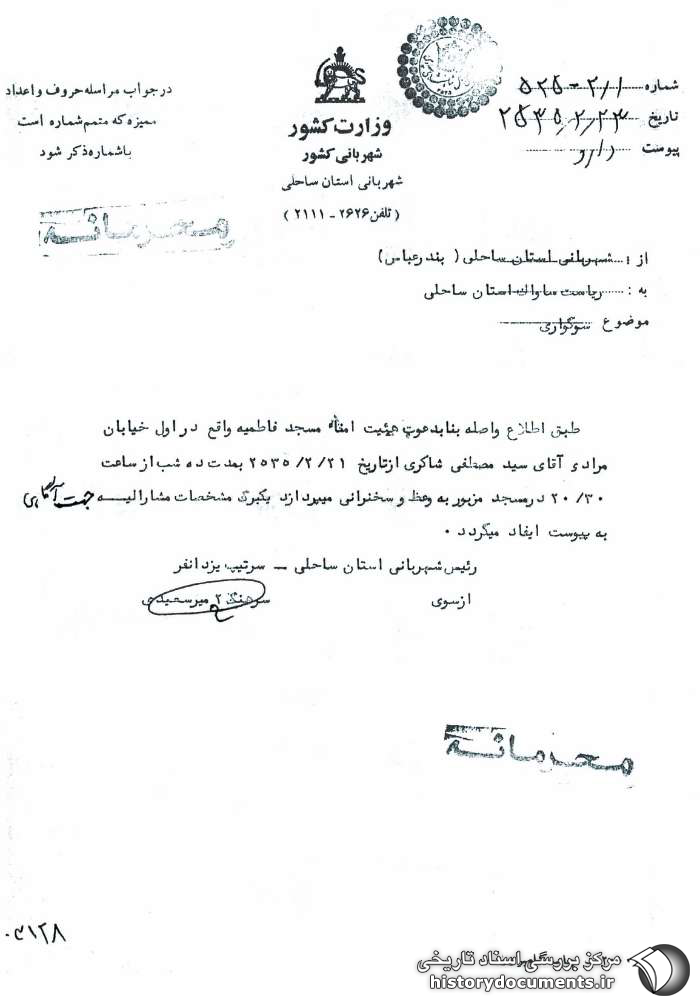 شماره ۵۲۵-۲/۱
تاریخ ۲۵۳۵/۲/۲۳
پیوست دارد
در جواب مراسله حروف و اعداد
ممیزه که متمم شماره است
با شماره ذکر شود
وزارت کشور
شهربانی کشور
شهربانی استان ساحلی
( تلفن ۲۶۲۶ - ۲۱۱۱ )
محرمانه
از : شهربانی استان ساحلی ( بندرعباس )
به : ریاست ساواك استان ساحلی
موضوع سوگواری
طبق اطلاع واصله بنا بدعوت هیئت امناء مسجد فاطمیه واقع در اول خیابان
مرادی آقای سید مصطفی شاکری از تاریخ ۲۵۳۵/۲/۲۱ بمدت ده شب از ساعت
۲۰/۳۰ در مسجد مزبور به وعظ و سخنرانی میپردازد یکبرگ مشخصات مشارالیه جهت آگاهی
به پیوست ایفاد میگردد .
رئیس شهربانی استان ساحلی ـ سرتیپ یزدانفر
از سوی سرهنگ ۲ میرسعیدی
محرمانه
مرکز بررسی اسناد تاریخی
historydocuments.ir